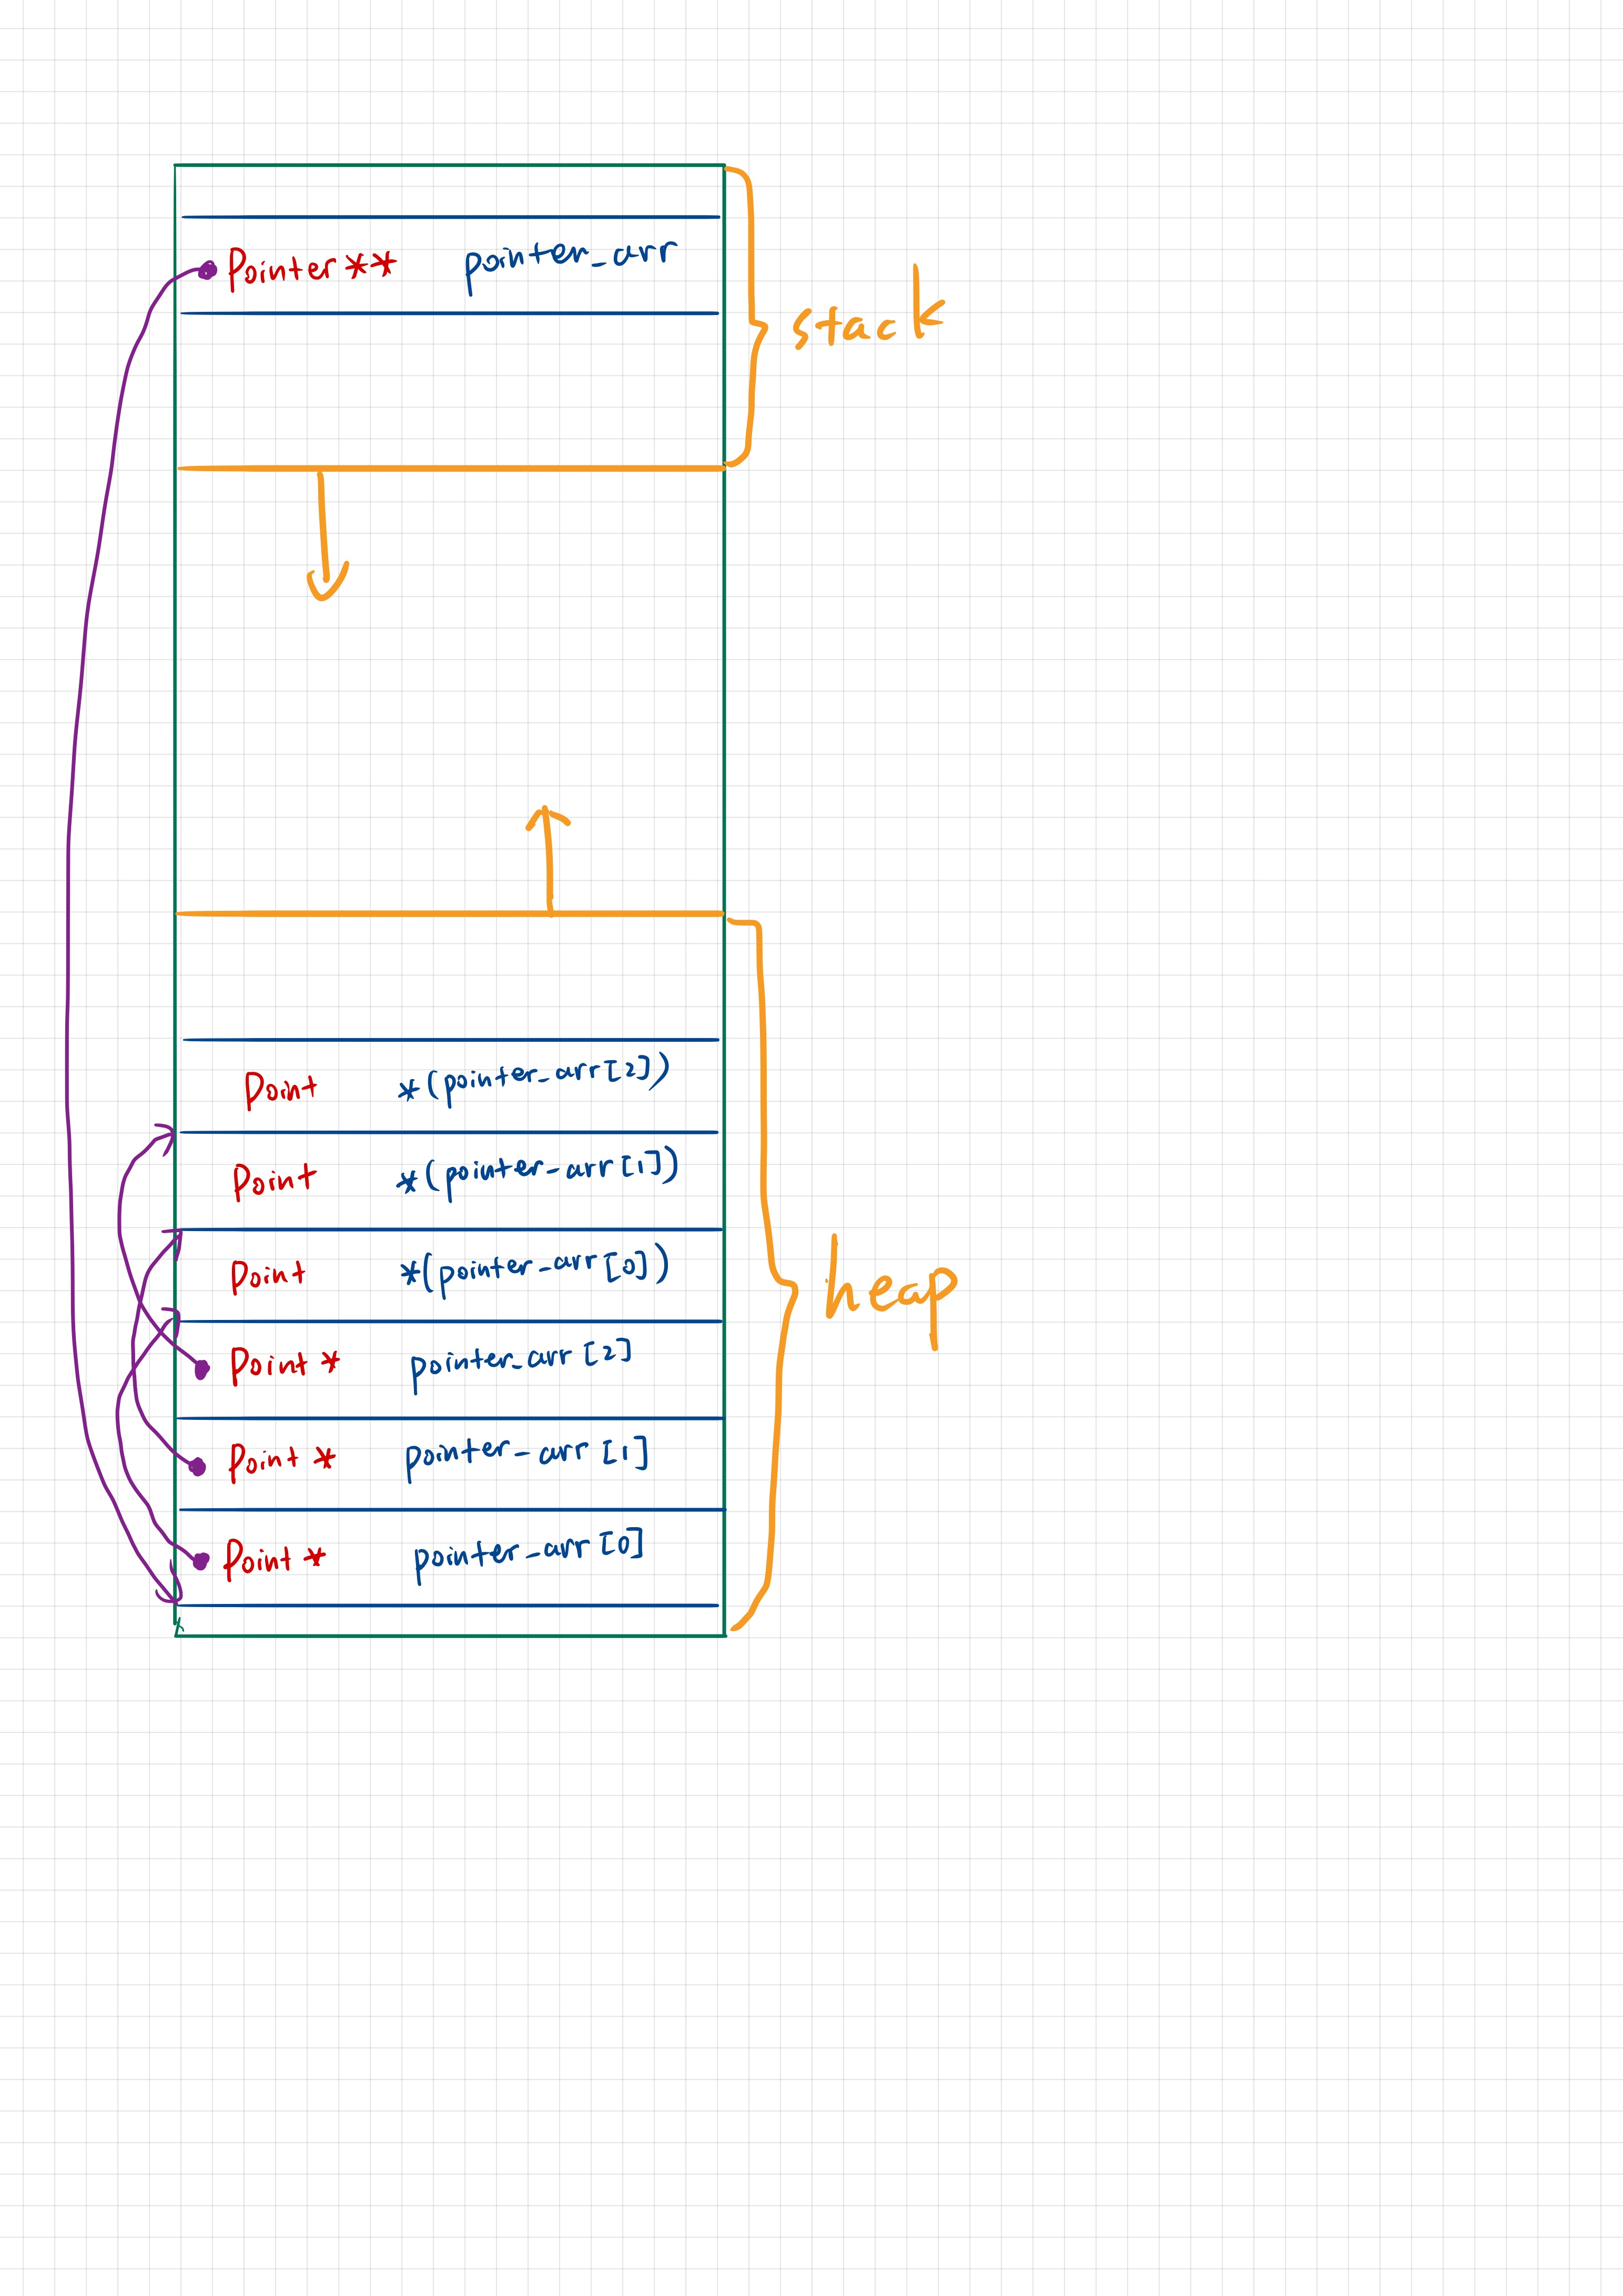 Pointer ** pointer_arr
stack
Point *(pointer_arr[2])
Point *(pointer_arr[1])
Point *(pointer_arr[0])
heap
Point * pointer_arr[2]
Point * pointer_arr[1]
Point * pointer_arr[0]